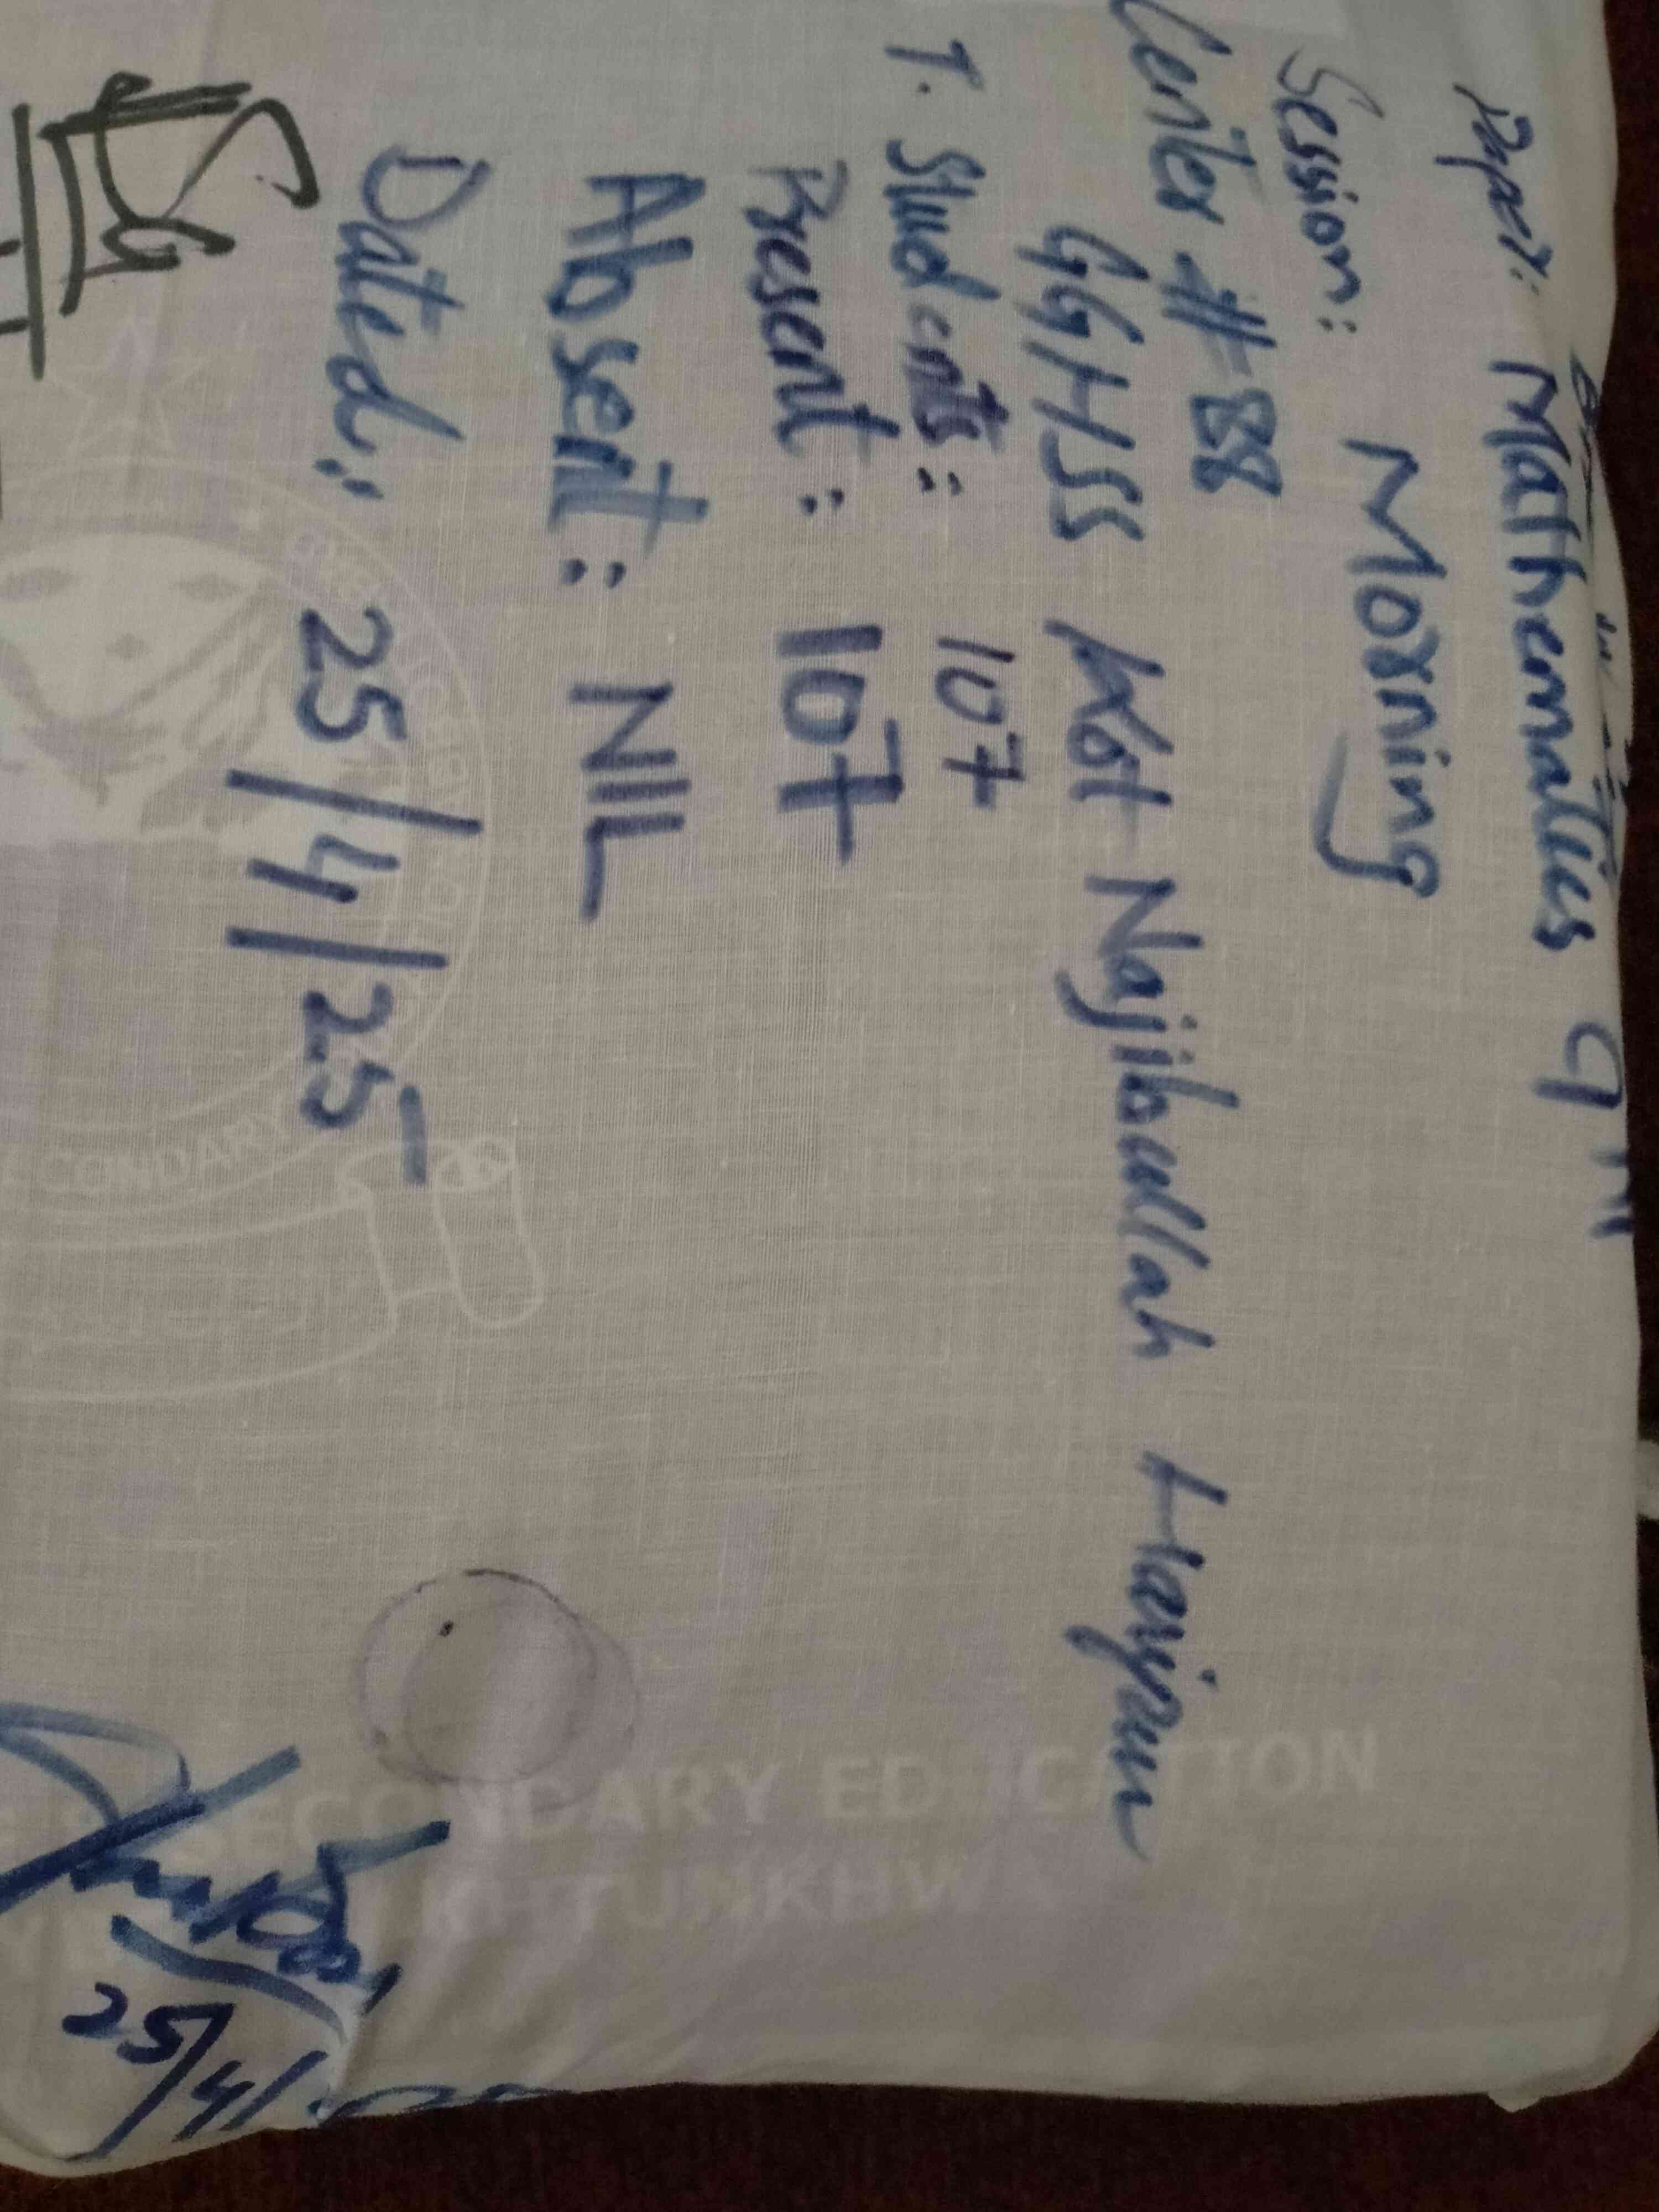 Paper: Mathematics 9th
Session: Morning
Center # 88
GGHSS Kot Najibullah Haripur
T. Students: 107
Present: 107
Absent: NIL
Dated: 25/4/25
25/4/
SECONDARY
SECONDARY EDUCATION
KHTUNKHWA